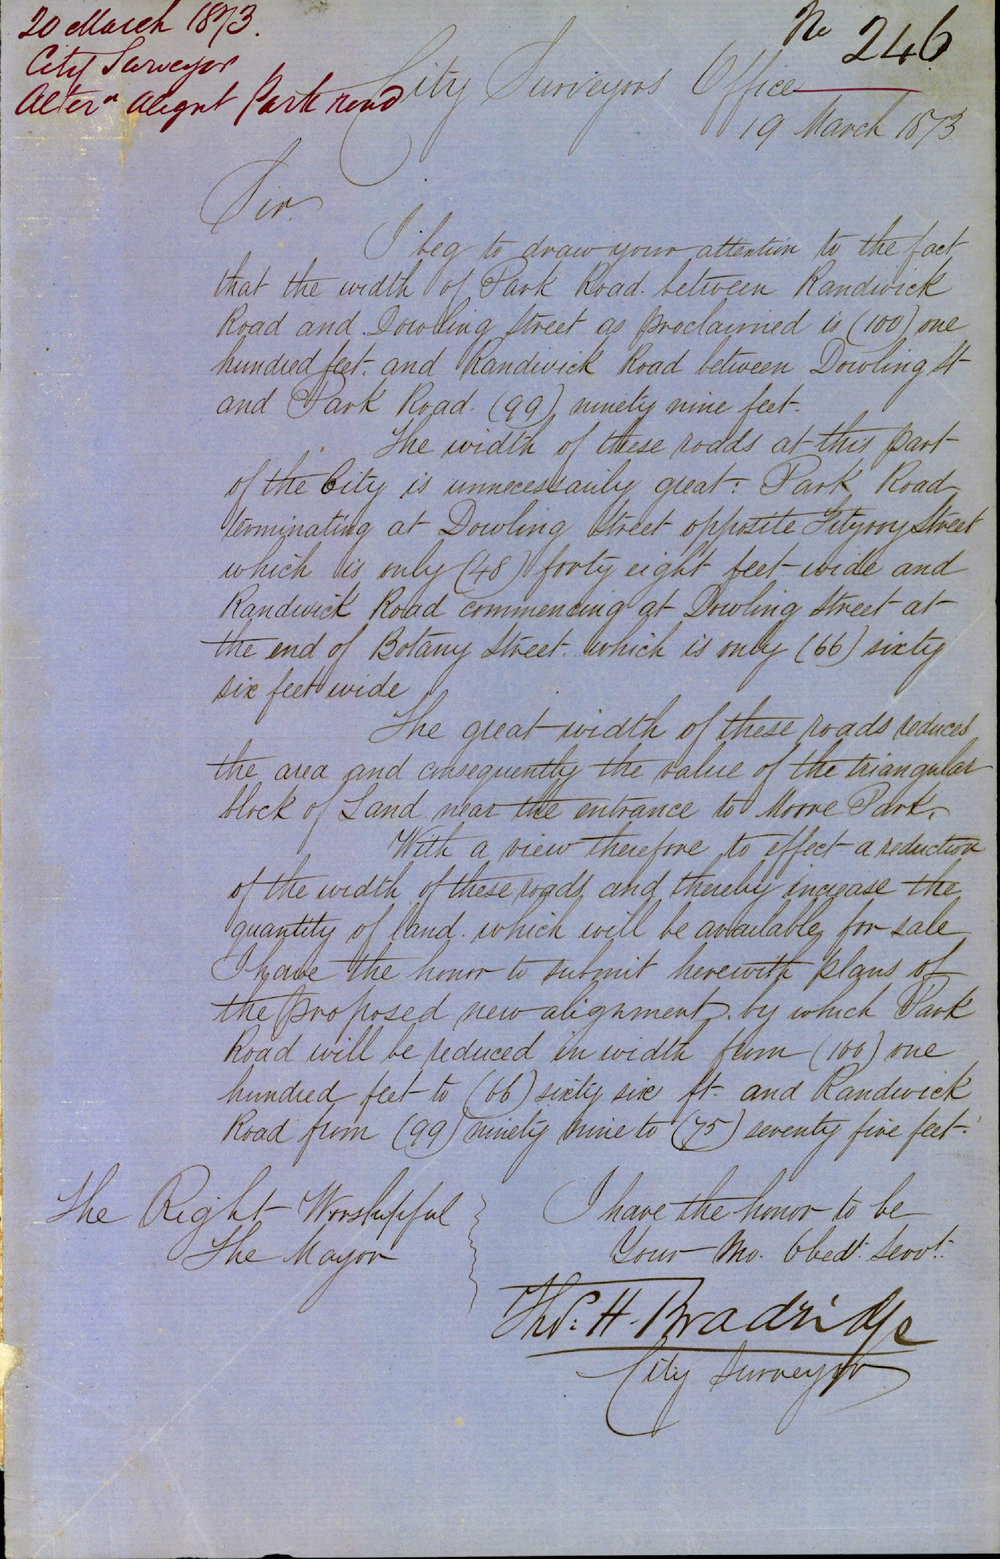 20 March 1873.
City Surveyor
Altern Alignt Park road
No 246
City Surveyors Office
19 March 1873
Sir.
I beg to draw your attention to the fact
that the width of Park Road between Randwick
Road and Dowling Street as proclaimed is (100) one
hundred feet. and Randwick Road between Dowling St
and Park Road. (99) ninety nine feet.
The width of these roads at this part
of the City is unnecessarily great: Park Road
terminating at Dowling Street opposite Fitzroy Street
which is only (48) forty eight feet wide and
Randwick Road commencing at Dowling Street at
the end of Botany Street. which is only (66) sixty
six feet wide
The great width of these roads reduces
the area and consequently the value of the triangular
block of Land near the entrance to Moore Park.
With a view therefore to effect a reduction
of the width of these roads and thereby increase the
quantity of land. which will be available for sale
I have the honor to submit herewith plans of
the proposed new alignment. by which Park
Road will be reduced in width from (100) one
hundred feet to (66) sixty six ft. and Randwick
Road from (99) ninety nine to (75) seventy five feet.
The Right Worshipful
The Mayor
I have the honor to be
Your Mo. Obedt. Servt.
Thos. H. Bradridge
City Surveyor